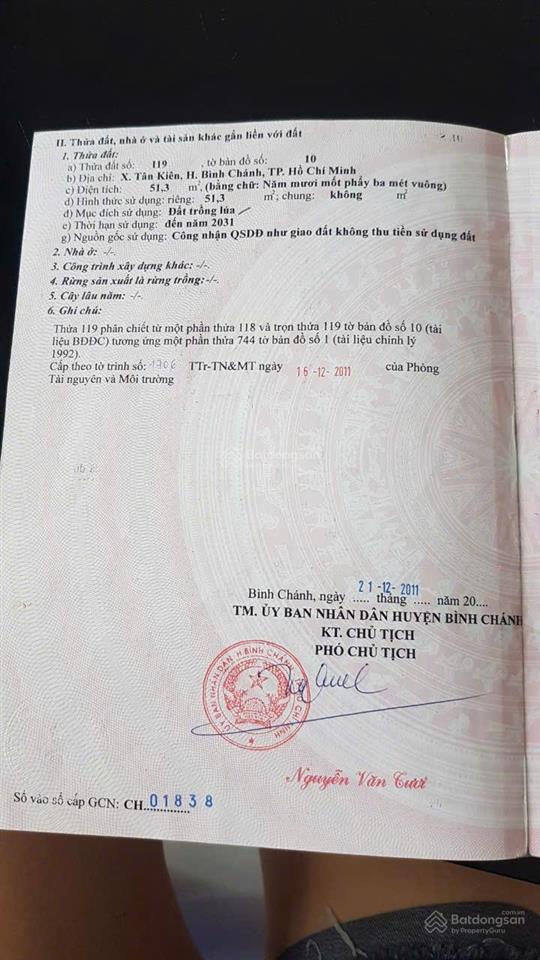 II. Thửa đất, nhà ở và tài sản khác gắn liền với đất
1. Thửa đất:
a) Thửa đất số: 119 , tờ bản đồ số: 10
b) Địa chỉ: X. Tân Kiên, H. Bình Chánh, TP. Hồ Chí Minh
c) Diện tích: 51,3 m², (bằng chữ: Năm mươi mốt phẩy ba mét vuông)
d) Hình thức sử dụng: riêng: 51,3 m²; chung: không m²
đ) Mục đích sử dụng: Đất trồng lúa
e) Thời hạn sử dụng: đến năm 2031
g) Nguồn gốc sử dụng: Công nhận QSDĐ như giao đất không thu tiền sử dụng đất
2. Nhà ở: -/-.
3. Công trình xây dựng khác: -/-.
4. Rừng sản xuất là rừng trồng:-/-.
5. Cây lâu năm: -/-.
6. Ghi chú:
Thửa 119 phân chiết từ một phần thửa 118 và trọn thửa 119 tờ bản đồ số 10 (tài
liệu BĐĐC) tương ứng một phần thửa 744 tờ bản đồ số 1 (tài liệu chỉnh lý
1992).
Cấp theo tờ trình số: 1706 TTr-TN&MT ngày 16-12-2011 của Phòng
Tài nguyên và Môi trường
Batdongsan
by PropertyGuru
21-12-2011
Bình Chánh, ngày ..... tháng ..... năm 20....
TM. ỦY BAN NHÂN DÂN HUYỆN BÌNH CHÁNH
KT. CHỦ TỊCH
PHÓ CHỦ TỊCH
ỦY BAN NHÂN DÂN H.BÌNH CHÁNH
Nguyễn Văn Tươi
Số vào sổ cấp GCN: CH 01838
Batdongsan.com.vn
by PropertyGuru